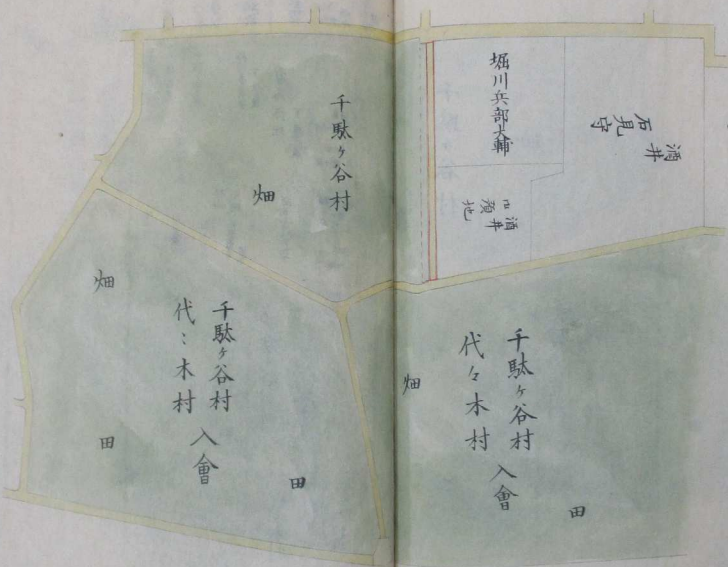 酒井
石見守
堀川兵部大輔
酒井
預地
千駄ヶ谷村
畑
千駄ヶ谷村
代々木村
入會
田
畑
千駄ヶ谷村
代〻木村
入會
畑
田
田